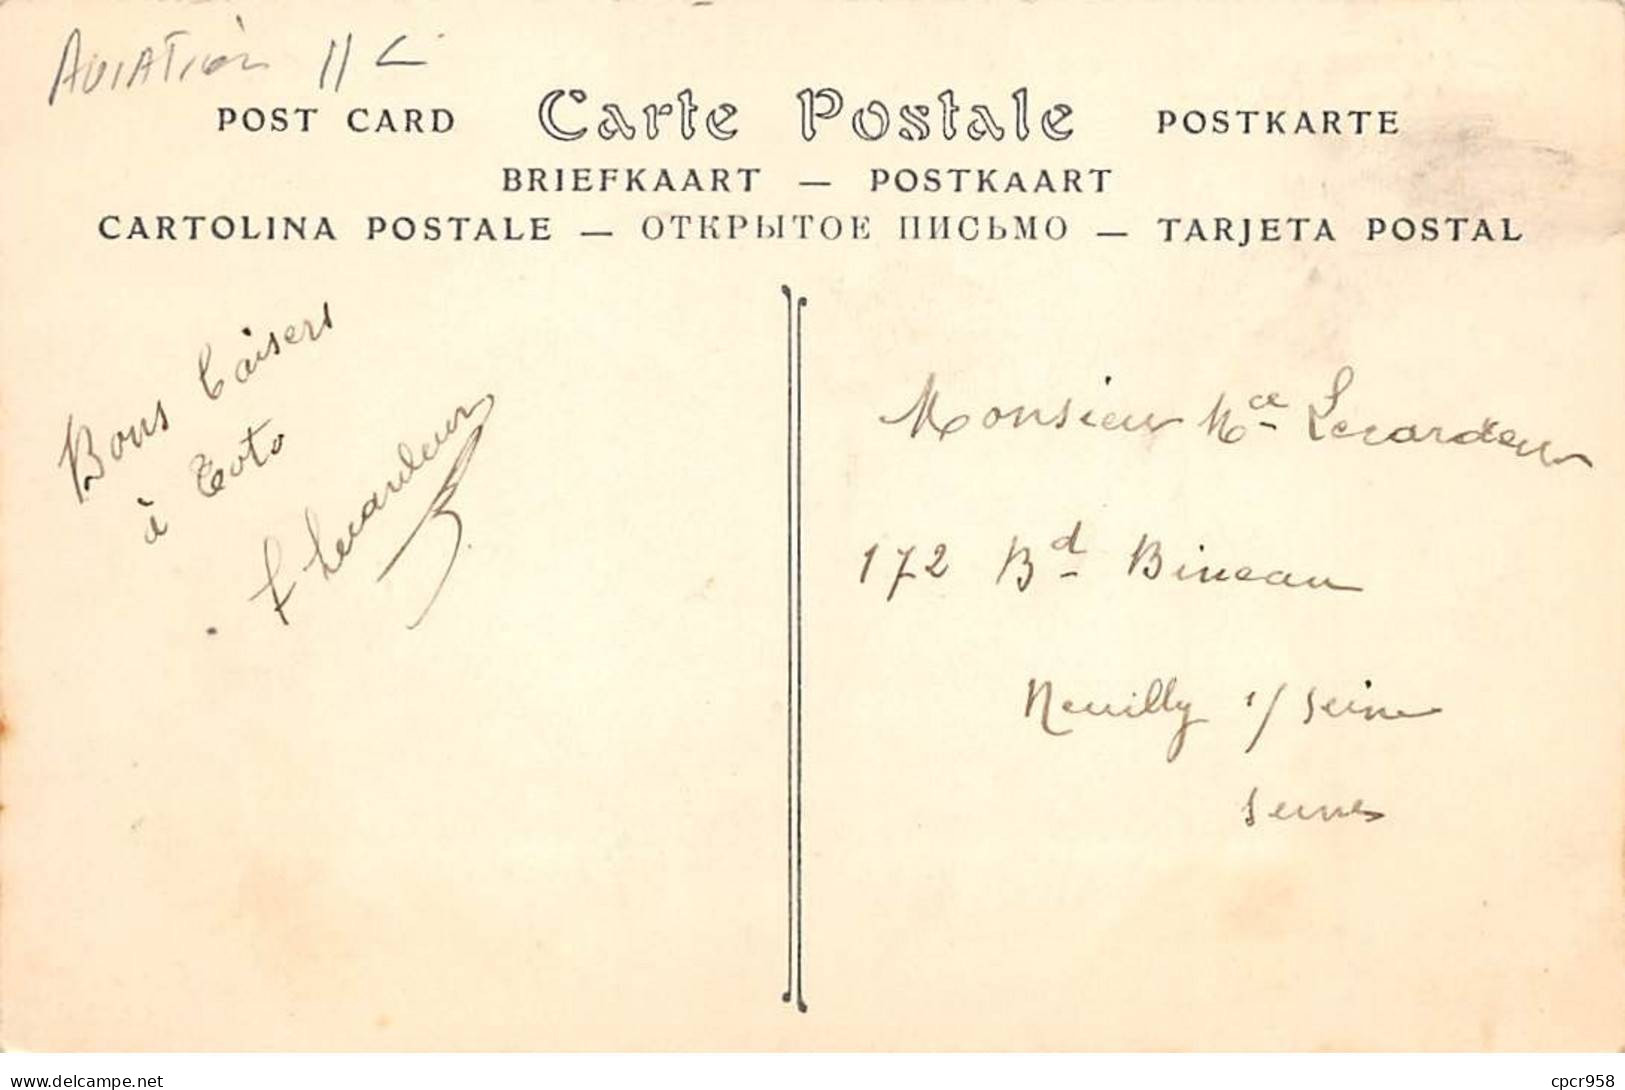 AVIATION 11 €
POST CARD Carte Postale POSTKARTE
BRIEFKAART — POSTKAART
CARTOLINA POSTALE — ОТКРЫТОЕ ПИСЬМО — TARJETA POSTAL
Bons baisers
à Toto
F Lecardeur
Monsieur Mce Lecardeur
172 Bd Bineau
Neuilly s/ Seine
Seine
www.delcampe.net
cpcr958